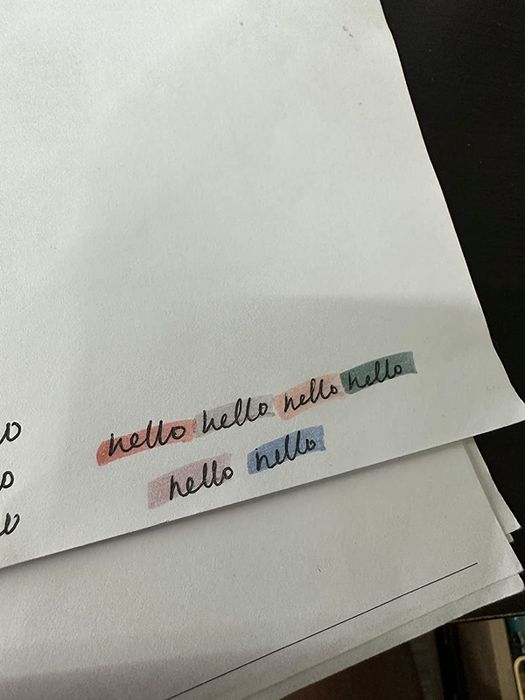 hello hello hello hello
hello hello